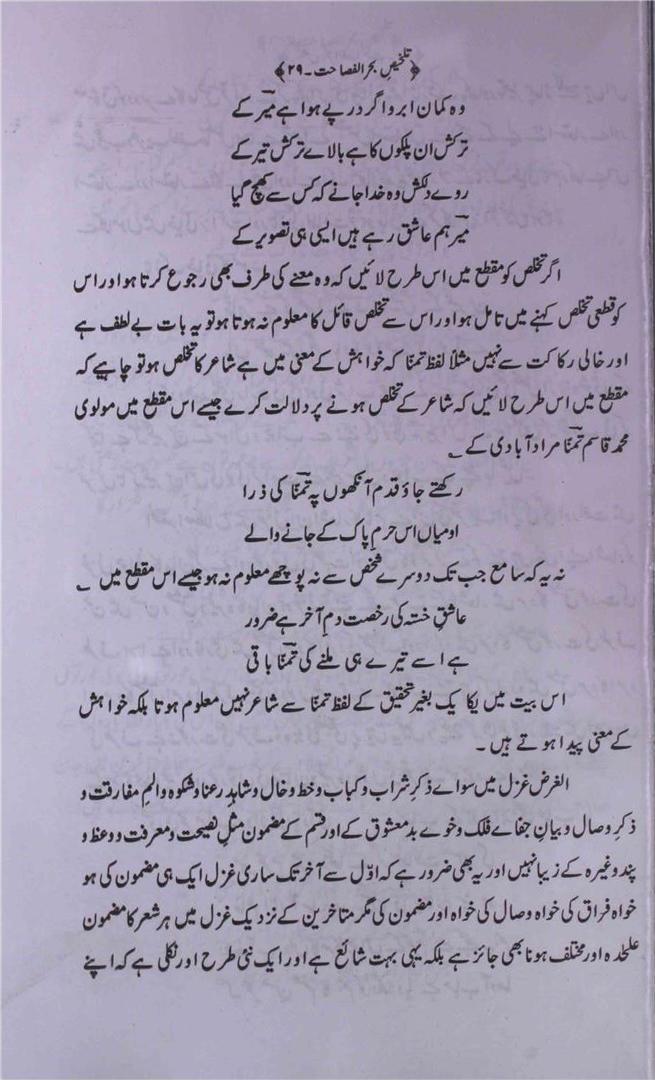 ﴿تلخیصِ بحر الفصاحت۔۲۹﴾
وہ کمان ابرو اگر درپے ہوا ہے میرؔ کے
ترکش ان پلکوں کا ہے بالاے ترکش تیر کے
روے دلکش وہ خدا جانے کہ کس سے کھچ گیا
میرؔ ہم عاشق رہے ہیں ایسی ہی تصویر کے
اگر تخلص کو مقطع میں اس طرح لائیں کہ وہ معنے کی طرف بھی رجوع کرتا ہو اور اس
کو قطعی تخلص کہنے میں تامل ہو اور اس سے تخلص قائل کا معلوم نہ ہوتا ہو تو یہ بات بے لطف ہے
اور خالی رکاکت سے نہیں مثلاً لفظ تمنّا کہ خواہش کے معنی میں ہے شاعر کا تخلص ہو تو چاہیے کہ
مقطع میں اس طرح لائیں کہ شاعر کے تخلص ہونے پر دلالت کرے جیسے اس مقطع میں مولوی
محمد قاسم تمنّاؔ مراد آبادی کے ؎
رکھتے جاؤ قدم آنکھوں پہ تمنّاؔ کی ذرا
او میاں اس حرمِ پاک کے جانے والے
نہ یہ کہ سامع جب تک دوسرے شخص سے نہ پوچھے معلوم نہ ہو جیسے اس مقطع میں ؎
عاشقِ خستہ کی رخصت دمِ آخر ہے ضرور
ہے اسے تیرے ہی ملنے کی تمنّاؔ باقی
اس بیت میں یکایک بغیر تحقیق کے لفظ تمنّا سے شاعر نہیں معلوم ہوتا بلکہ خواہش
کے معنی پیدا ہوتے ہیں۔
الغرض غزل میں سواے ذکرِ شراب و کباب و خط و خال و شاہدِ رعنا و شکوہ و المِ مفارقت و
ذکرِ وصال و بیانِ جفاے فلک و خوے بد معشوق کے اور قسم کے مضمون مثلِ نصیحت و معرفت و وعظ و
پند وغیرہ کے زیبا نہیں اور یہ بھی ضرور ہے کہ اوّل سے آخر تک ساری غزل ایک ہی مضمون کی ہو
خواہ فراق کی خواہ وصال کی خواہ اور مضمون کی مگر متاخرین کے نزدیک غزل میں ہر شعر کا مضمون
علٰحدہ اور مختلف ہونا بھی جائز ہے بلکہ یہی بہت شائع ہے اور ایک نئی طرح اور نکلی ہے کہ اپنے